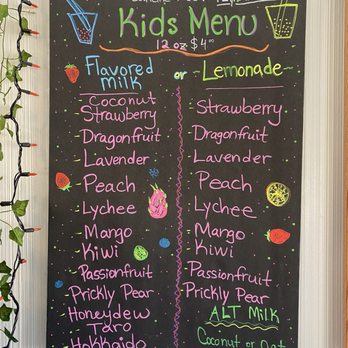 Kids Menu
12 oz. $4
Flavored Milk or Lemonade
Coconut
Strawberry
Dragonfruit
Lavender
Peach
Lychee
Mango
Kiwi
Passionfruit
Prickly Pear
Honeydew
Taro
Hokkaido
Strawberry
Dragonfruit
Lavender
Peach
Lychee
Mango
Kiwi
Passionfruit
Prickly Pear
ALT Milk
Coconut or Oat